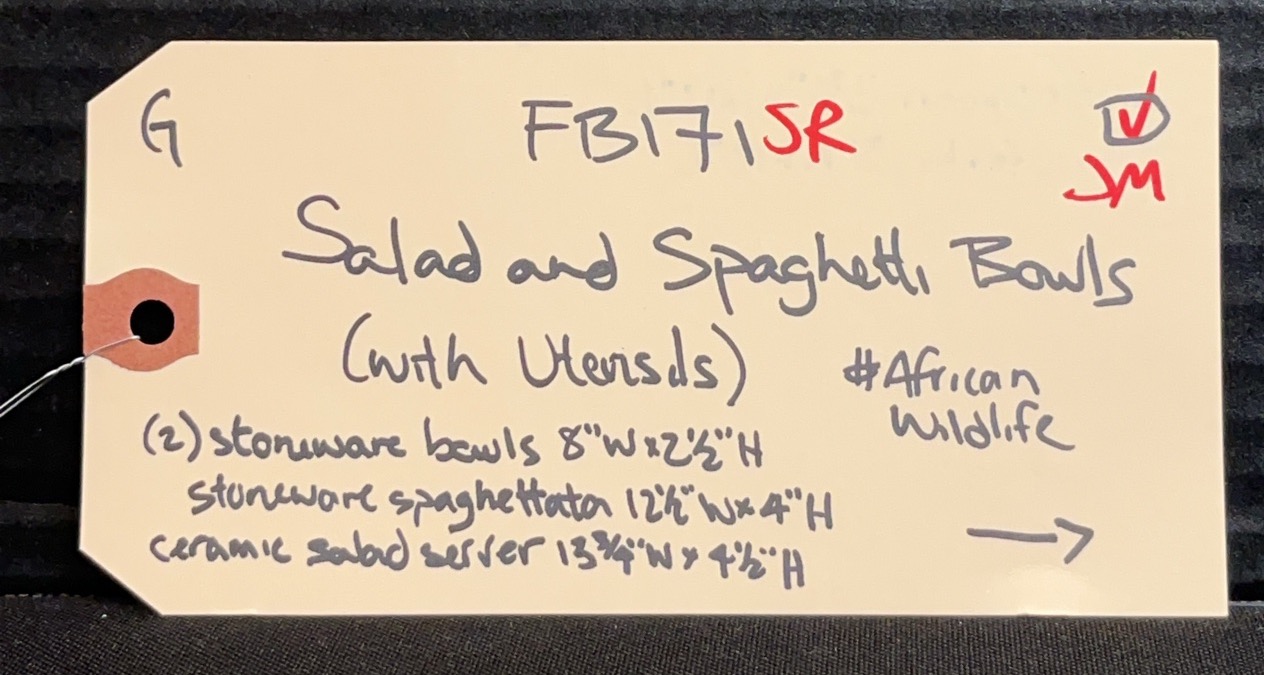 G FB171 SR ☑
JM
Salad and Spaghetti Bowls
(with Utensils)
#African
Wildlife
(2) stoneware bowls 8"W x 2½"H
stoneware spaghettata 12½"W x 4"H
ceramic salad server 13¾"W x 4½"H
→